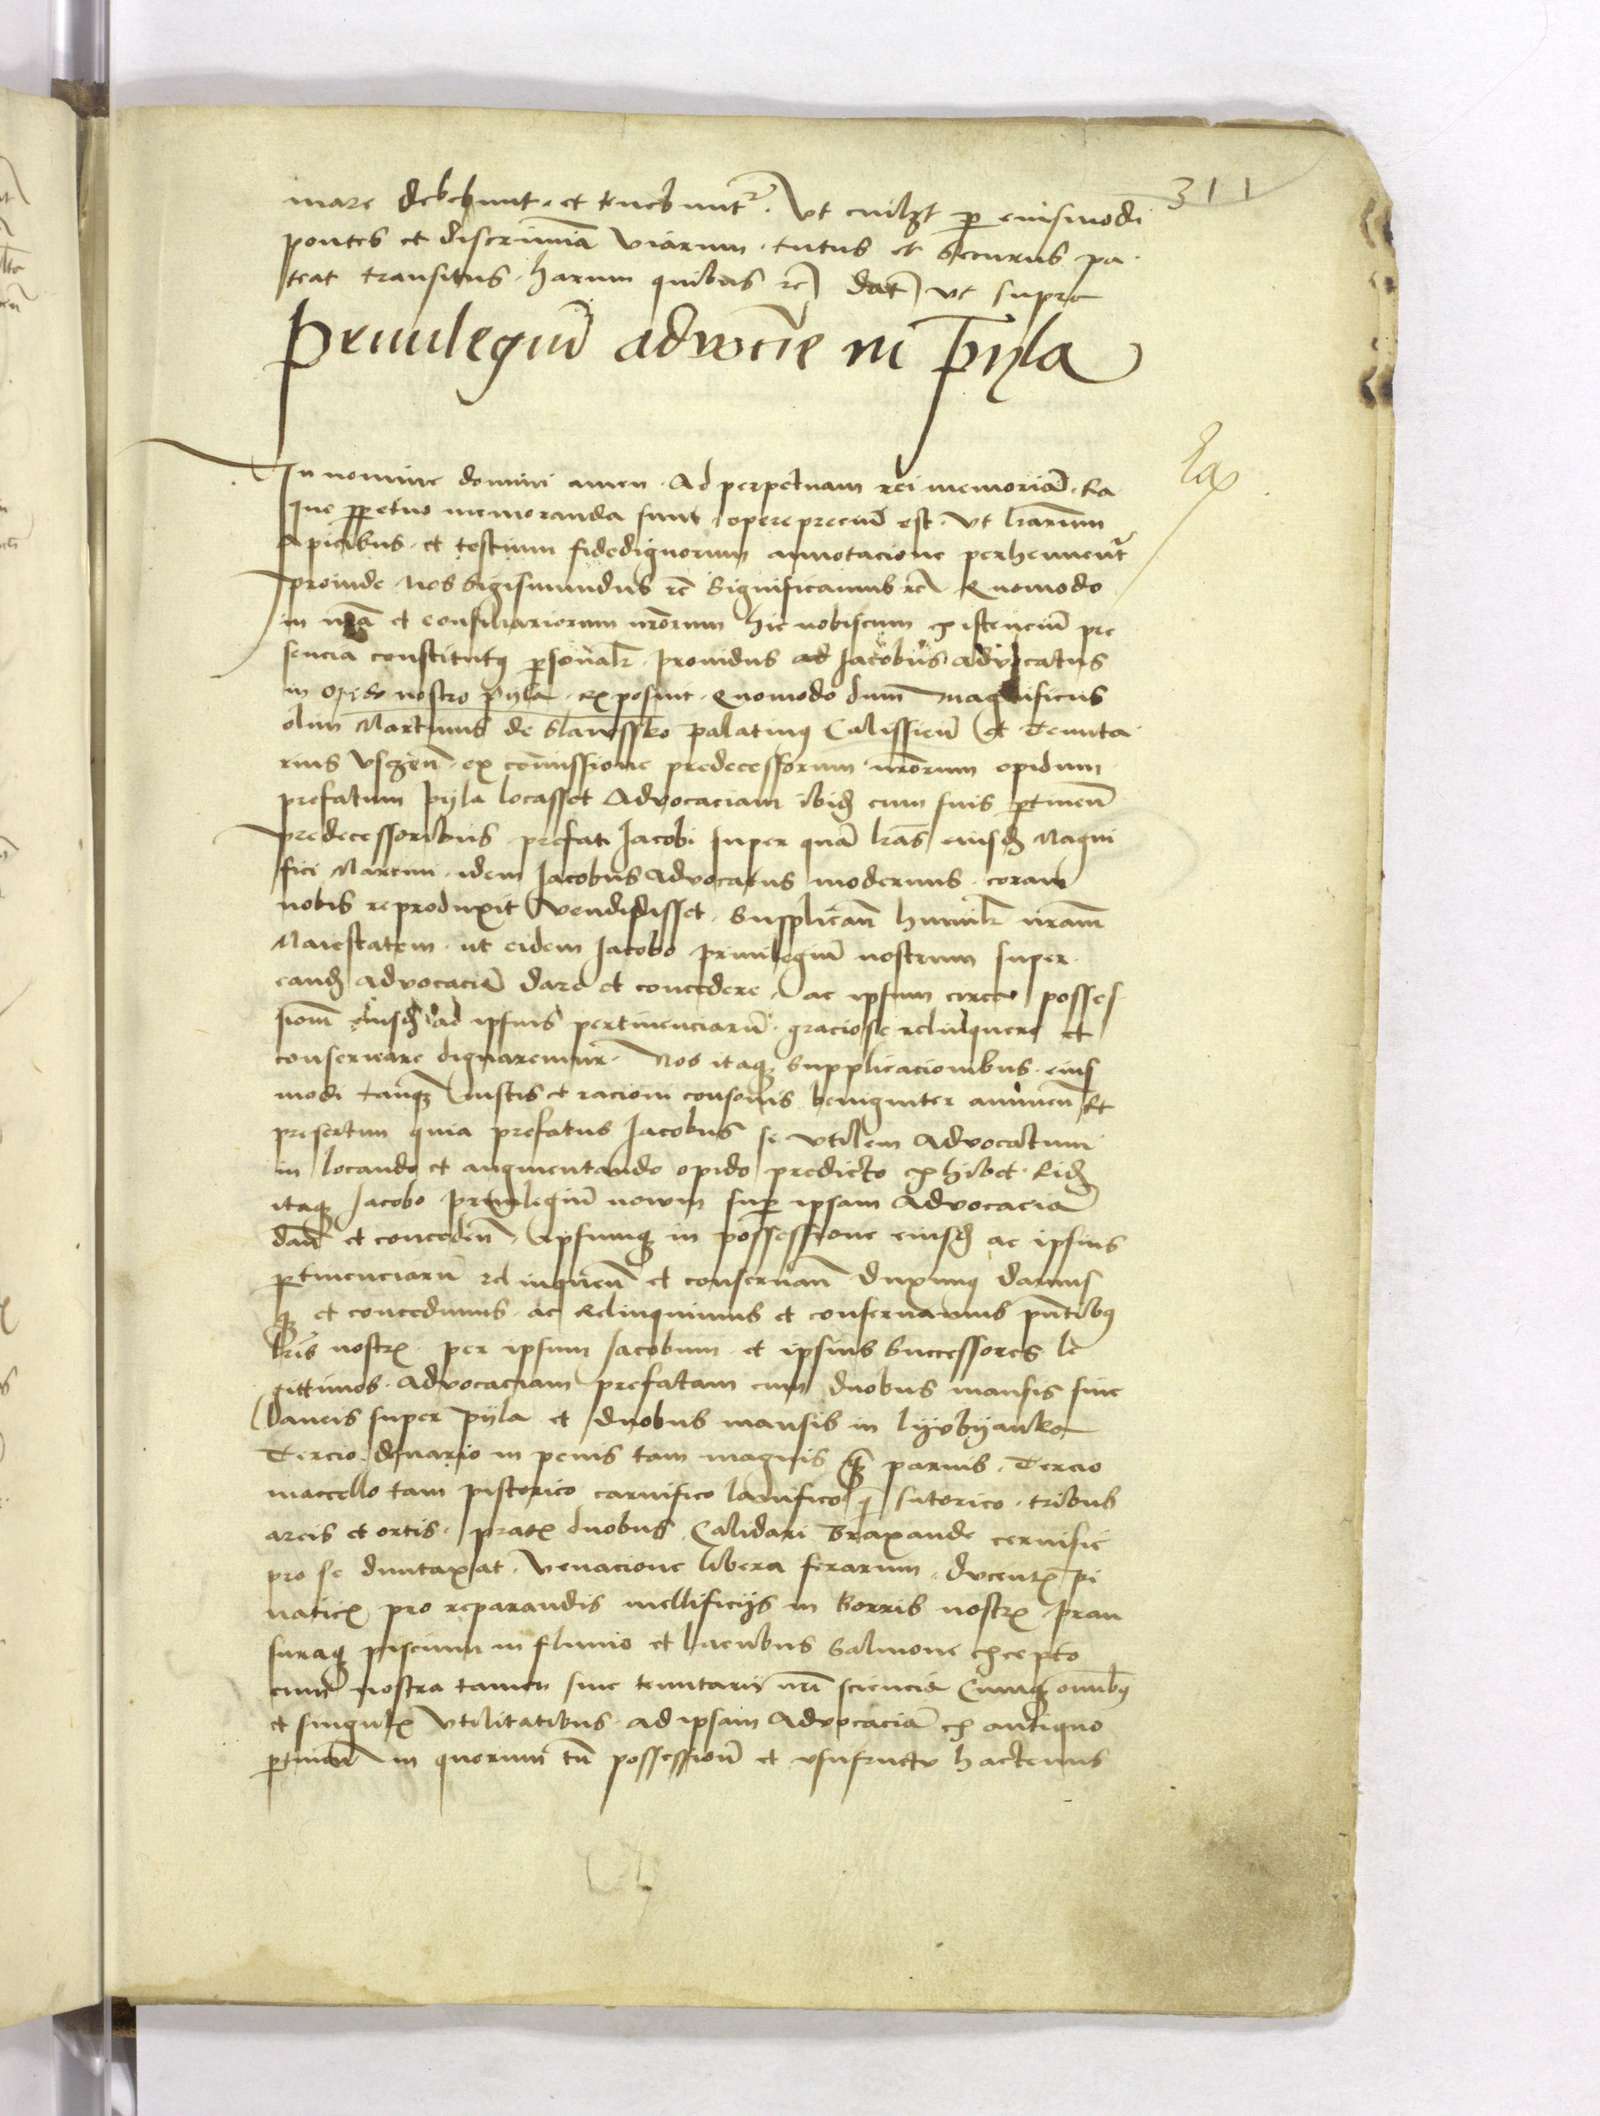 311
mare debebunt et tenebuntr. Vt cuilzt p eiusmodi
pontes et discrimia viarum tutus et securus pa
teat transitus. harum quibus rc dat vt supra
Priuilegiu advocie in Pyla
In nomine domini amen. Ad perpetuam rei memoria. Ea
que ppetuo memoranda sunt opereprecium est. Vt lrarum
Apicibus et testium fidedignorum annotacione perhennent
proinde Nos Sigismundus rc Significamus rc Quomodo
in nra et consiliariorum nrorum hic nobiscum existenciu pre
sencia constitutus psonalr prouidus Iacobus advocatus
in opido nostro pyla exposuit. Quomodo dum magnificus
olim Martinus de Slawssko palatinus Calissien et Tenuta
rius Vsczen ex comissione predecessorum nrorum opidum
prefatum Pyla locasset Advocaciam ibid cum suis ptinen
predecessoribus prefati Iacobi super qua lras eiusd Magni
fici Martini idem Iacobus Advocatus modernus coram
nobis reproduxit vendidisset. Supplican humilr nram
Maiestatem ut eidem Iacobo priuilegiu nostrum super
eand advocacia dare et concedere ac ipsum circa posses
sionem eiusd ad ipsius pertinenciaru graciose relinquere et
conseruare dignaremur. Nos itaq supplicacionibus eius
modi tanq iustis et racioni consonis benigniter annuen Et
presertim quia prefatus Iacobus se vtilem Advocatum
in locando et augmentando opido predicto exhibet. Eid
itaq Iacobo priuilegiu nouum sup ipsam Advocacia
dan et conceden ipsumq in possessione eiusd ac ipsius
ptinenciaru relinquen et conseruan duximus damus
q et concedimus ac relinquimus et conseruamus pntibus
lris nostr per ipsum Iacobum et ipsius Successores le
gittimos Advocaciam prefatam cum duobus mansis siue
laneis super Pyla et duobus mansis in
Tercio denario in penis tam magnis q paruis. Tercio
maccello tam pistorico carnifico lanifico q sutorico tribus
areis et ortis prat duobus Calidari Braxande ceruisie
pro se duntaxat. Venacione libera ferarum ducent pi
natic pro reparandis mellificijs in Borris nostr
suraq piscium in fluuio et lacubus Salmone excepto
cum nostra tamen siue tenutarij nri sciencia Cumq omnibus
et singulr vtilitatibus ad ipsam Advocacia ex antiquo
ptinen in quorum tn possession et vsufructu hactenus